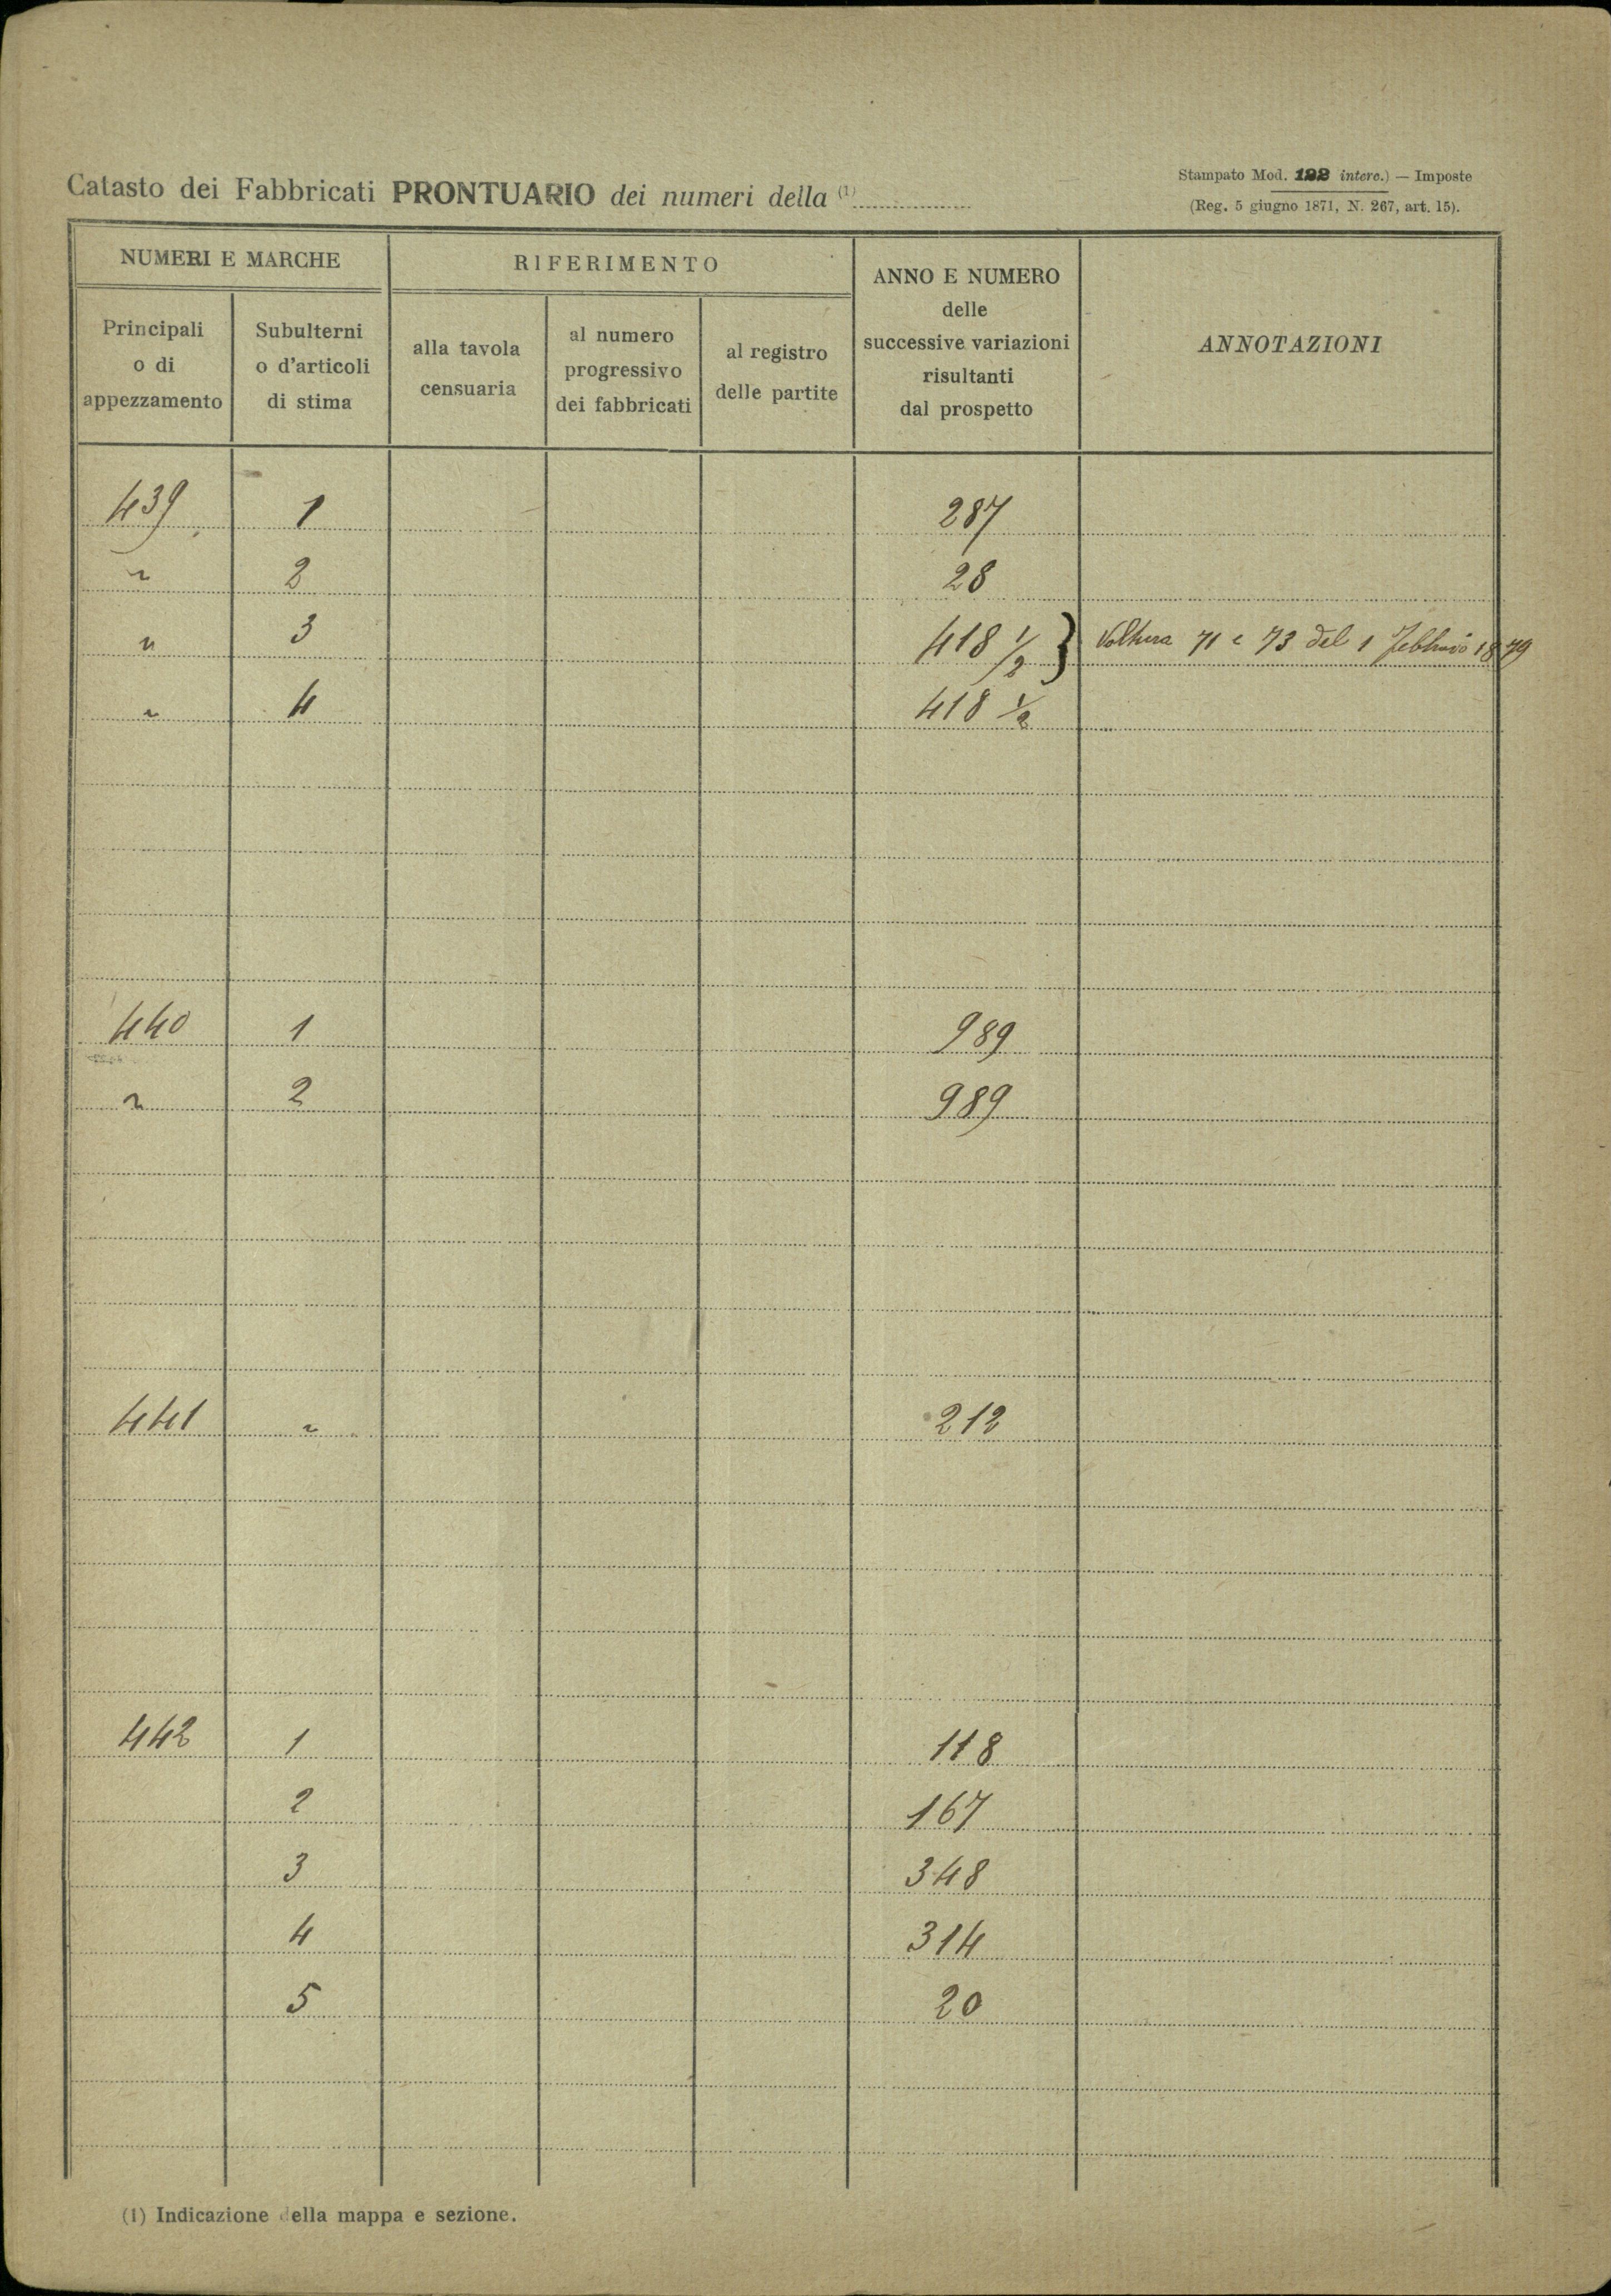 Catasto dei Fabbricati PRONTUARIO dei numeri della (1)
Stampato Mod. 122 interc.) — Imposte
(Reg. 5 giugno 1871, N. 267, art. 15).
NUMERI E MARCHE
RIFERIMENTO
ANNO E NUMERO
delle
successive variazioni
risultanti
dal prospetto
ANNOTAZIONI
Principali
o di
appezzamento
Subulterni
o d'articoli
di stima
alla tavola
censuaria
al numero
progressivo
dei fabbricati
al registro
delle partite
439 1 287
" 2 28
" 3 418 1/2 } Voltura 71 e 73 del 1 Febbraio 1879
" 4 418 1/2
440 1 989
" 2 989
441 " 212
442 1 118
2 167
3 348
4 314
5 20
(1) Indicazione della mappa e sezione.